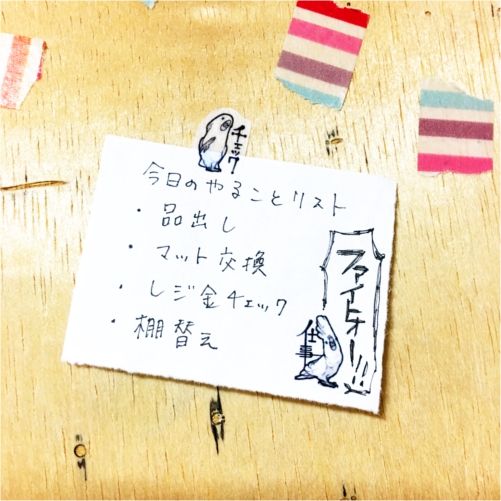 チェック
今日のやることリスト
・品出し
・マット交換
・レジ金チェック
・棚替え
ファイトォー!!!
仕事